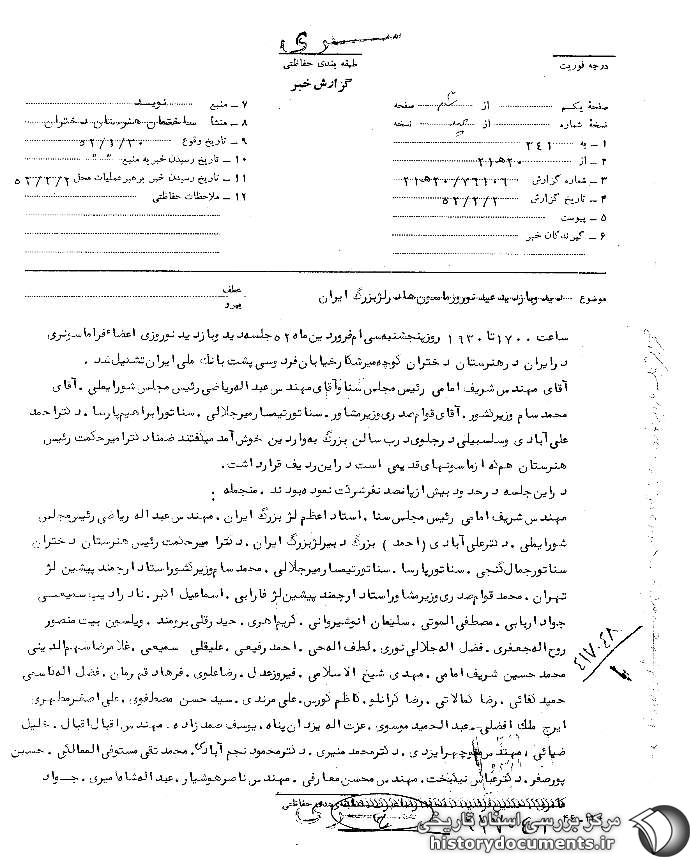 سـری
طبقه بندی حفاظتی
گزارش خبر
درجه فوریت
صفحهٔ یکم از صفحه
نسخهٔ شماره از نسخه
۱ ـ به ۲۴۱
۲ ـ از ۲۰ه۲۱
۳ ـ شماره گزارش ۲۱ه۲۰/۷۹۱۰۶
۴ ـ تاریخ گزارش ۵۲/۲/۲
۵ ـ پیوست
۶ ـ گیرندگان خبر
۷ ـ منبع نوید
۸ ـ منشأ ساختمان هنرستان دختران
۹ ـ تاریخ وقوع ۵۲/۱/۳۰
۱۰ ـ تاریخ رسیدن خبر به منبع " "
۱۱ ـ تاریخ رسیدن خبر به رهبر عملیات محل ۵۲/۲/۲
۱۲ ـ ملاحظات حفاظتی
موضوع دید و بازدید عید نوروز ماسون ها در لژ بزرگ ایران
عطف
پیرو
ساعت ۱۷۰۰ تا ۱۹۳۰ روز پنجشنبه سی ام فروردین ماه ۵۲ جلسه دید و بازدید نوروزی اعضاء فراماسونری
در ایران در هنرستان دختران کوچه میرشکار خیابان فردوسی پشت بانک ملی ایران تشکیل شد .
آقای مهندس شریف امامی رئیس مجلس سنا و آقای مهندس عبداله ریاضی رئیس مجلس شورایملی . آقای
محمد سام وزیر کشور . آقای قوام صدری وزیر مشاور . سناتور تیمسار میرجلالی . سناتور ابراهیم پارسا . دکتر احمد
علی آبادی وسلسبیلی در جلوی درب سالن بزرگ به واردین خوش آمد میگفتند ضمنا دکتر امیر حکمت رئیس
هنرستان هم که از ماسونهای قدیمی است در این ردیف قرار داشت .
در این جلسه در حدود بیش از پانصد نفر شرکت نموده بودند . منجمله :
مهندس شریف امامی رئیس مجلس سنا . استاد اعظم لژ بزرگ ایران . مهندس عبداله ریاضی رئیس مجلس
شورایملی . دکتر علی آبادی ( احمد ) بزرگ دبیر لژ بزرگ ایران . دکتر امیر حکمت رئیس هنرستان دختران
سناتور جمال گنجی . سناتور پارسا . سناتور تیمسار میرجلالی . محمد سام وزیر کشور استاد ارجمند پیشین لژ
تهران . محمد قوام صدری وزیر مشاور استاد ارجمند پیشین لژ فارابی . اسماعیل اکبر . نادر ادیب سمیعی
جواد اربابی . مصطفی الموتی . سلیمان انوشیروانی . کریم اهری . حیدرقلی برومند . ویلسن بیت منصور
روح اله جعفری . فضل اله جلالی نوری . لطف اله حی . احمد رفیعی . علیقلی سمیعی . غلامرضا سهم الدینی
محمد حسین شریف امامی . مهدی شیخ الاسلامی . فیروز عدل . رضا علوی . فرهاد قهرمان . فضل اله قاسمی
حمید کفائی . رضا کمالاتی . رضا کرانلو . کاظم کورس . علی مرندی . سید حسن مصطفوی . علی اصغر مطهری
ایرج ملک افضلی . عبدالحمید موسوی . عزت اله یزدان پناه . یوسف صمدزاده . مهندس اقبال اقبال . خلیل
ضیائی . مهندس منوچهر ایزدی . دکتر محمد منیری . دکتر محمود نجم آبادی . محمد تقی مستوفی الممالکی . حسین
پورصفر . دکتر عباس نیکبخت . مهندس محسن معارفی . مهندس ناصر هوشیار . عبداله شاه امیری . جواد
طبقه بندی حفاظتی
۴۱۷۰۴۸
مرکز بررسی اسناد تاریخی
historydocuments.ir